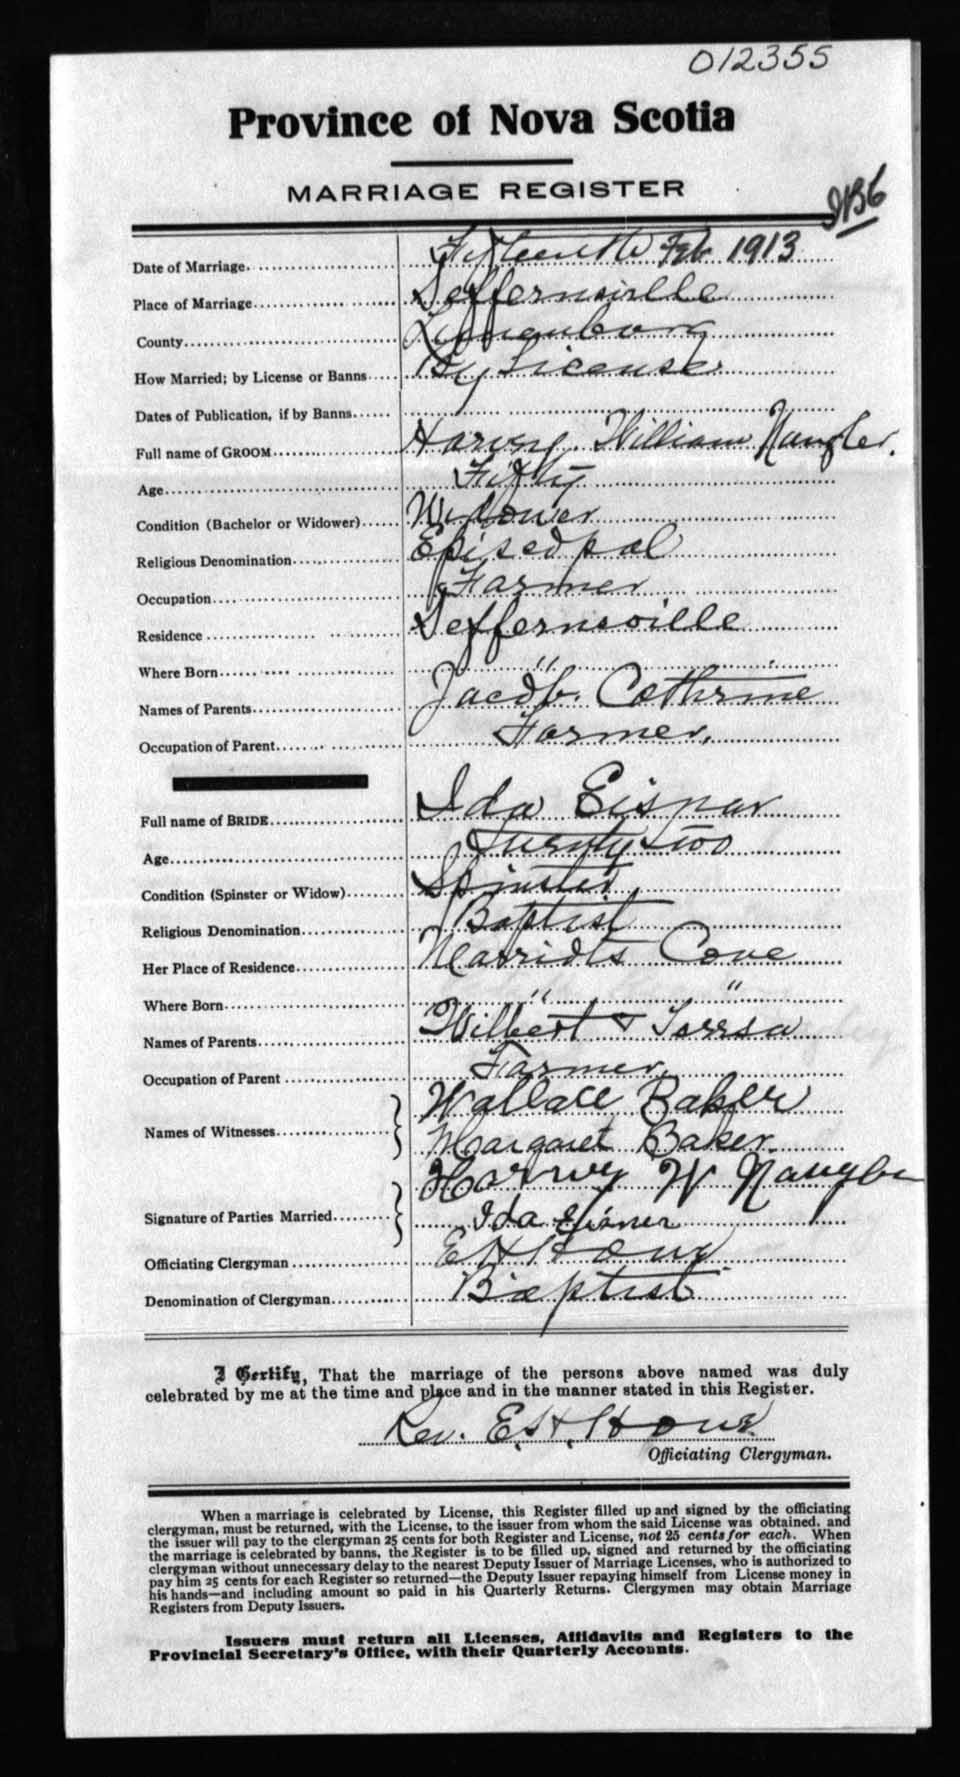 012355
Province of Nova Scotia
MARRIAGE REGISTER
Date of Marriage Fifteenth Feb 1913
Place of Marriage Seffernsville
County Lunenburg
How Married; by License or Banns By License
Dates of Publication, if by Banns
Full name of GROOM Harvey William Naugler.
Age Fifty
Condition (Bachelor or Widower) Widower
Religious Denomination Episcopal
Occupation Farmer
Residence Seffernsville
Where Born "
Names of Parents Jacob. Cothrine
Occupation of Parent Farmer.
Full name of BRIDE Ida Eisnar
Age Twenty two
Condition (Spinster or Widow) Spinster
Religious Denomination Baptist
Her Place of Residence Marriots Cove
Where Born " "
Names of Parents Wilbert &
Occupation of Parent Farmer.
Names of Witnesses Wallace Baker
Margaret Baker.
Signature of Parties Married Harvey W Naugler
Ida Eisner
Officiating Clergyman E H Howe
Denomination of Clergyman Baptist
I Certify, That the marriage of the persons above named was duly
celebrated by me at the time and place and in the manner stated in this Register.
Rev. E. H. Howe.
Officiating Clergyman.
When a marriage is celebrated by License, this Register filled up and signed by the officiating
clergyman, must be returned, with the License, to the issuer from whom the said License was obtained, and
the issuer will pay to the clergyman 25 cents for both Register and License, not 25 cents for each. When
the marriage is celebrated by banns, the Register is to be filled up, signed and returned by the officiating
clergyman without unnecessary delay to the nearest Deputy Issuer of Marriage Licenses, who is authorized to
pay him 25 cents for each Register so returned—the Deputy Issuer repaying himself from License money in
his hands—and including amount so paid in his Quarterly Returns. Clergymen may obtain Marriage
Registers from Deputy Issuers.
Issuers must return all Licenses, Affidavits and Registers to the
Provincial Secretary's Office, with their Quarterly Accounts.